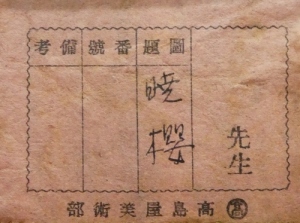 圖題番號備考
曉櫻
先生
高島屋美術部